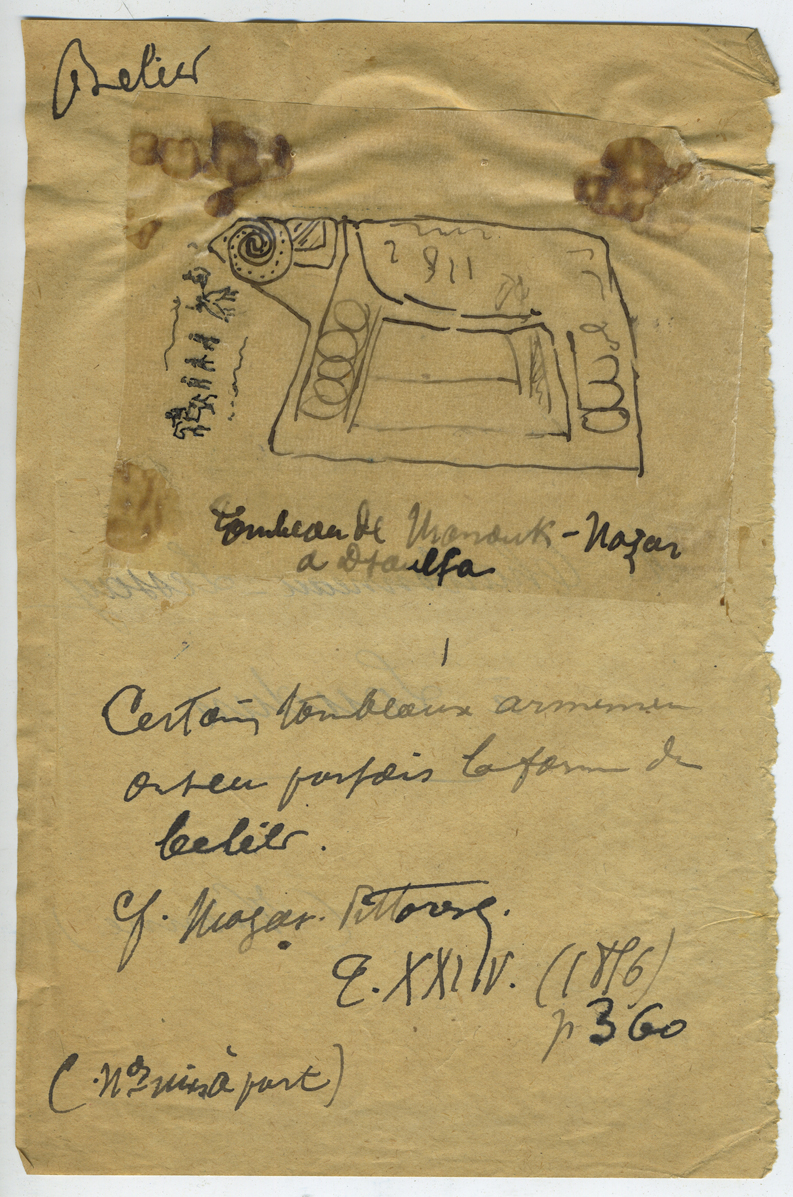 Belier
Tombeau de Manouk-Nazar
a Djoulfa
Certains tombeaux armenien
ont eu parfois la forme de
belier.
cf. Magas. Pittoresq.
T. XXIV. (1856)
p 360
(Nos mis à part)